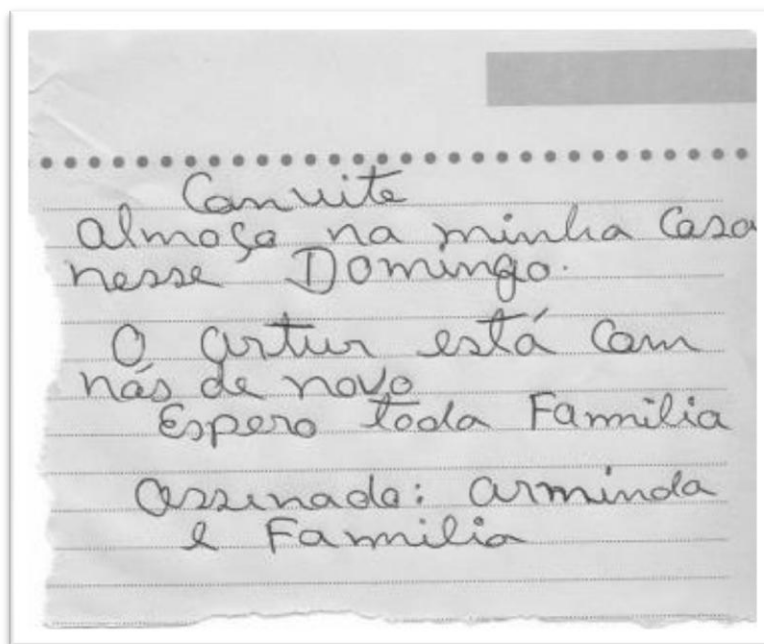 Convite
Almoço na minha Casa
nesse Domingo.
O Artur está com
nós de novo
Espero toda Familia
Assinado: Arminda
e Familia